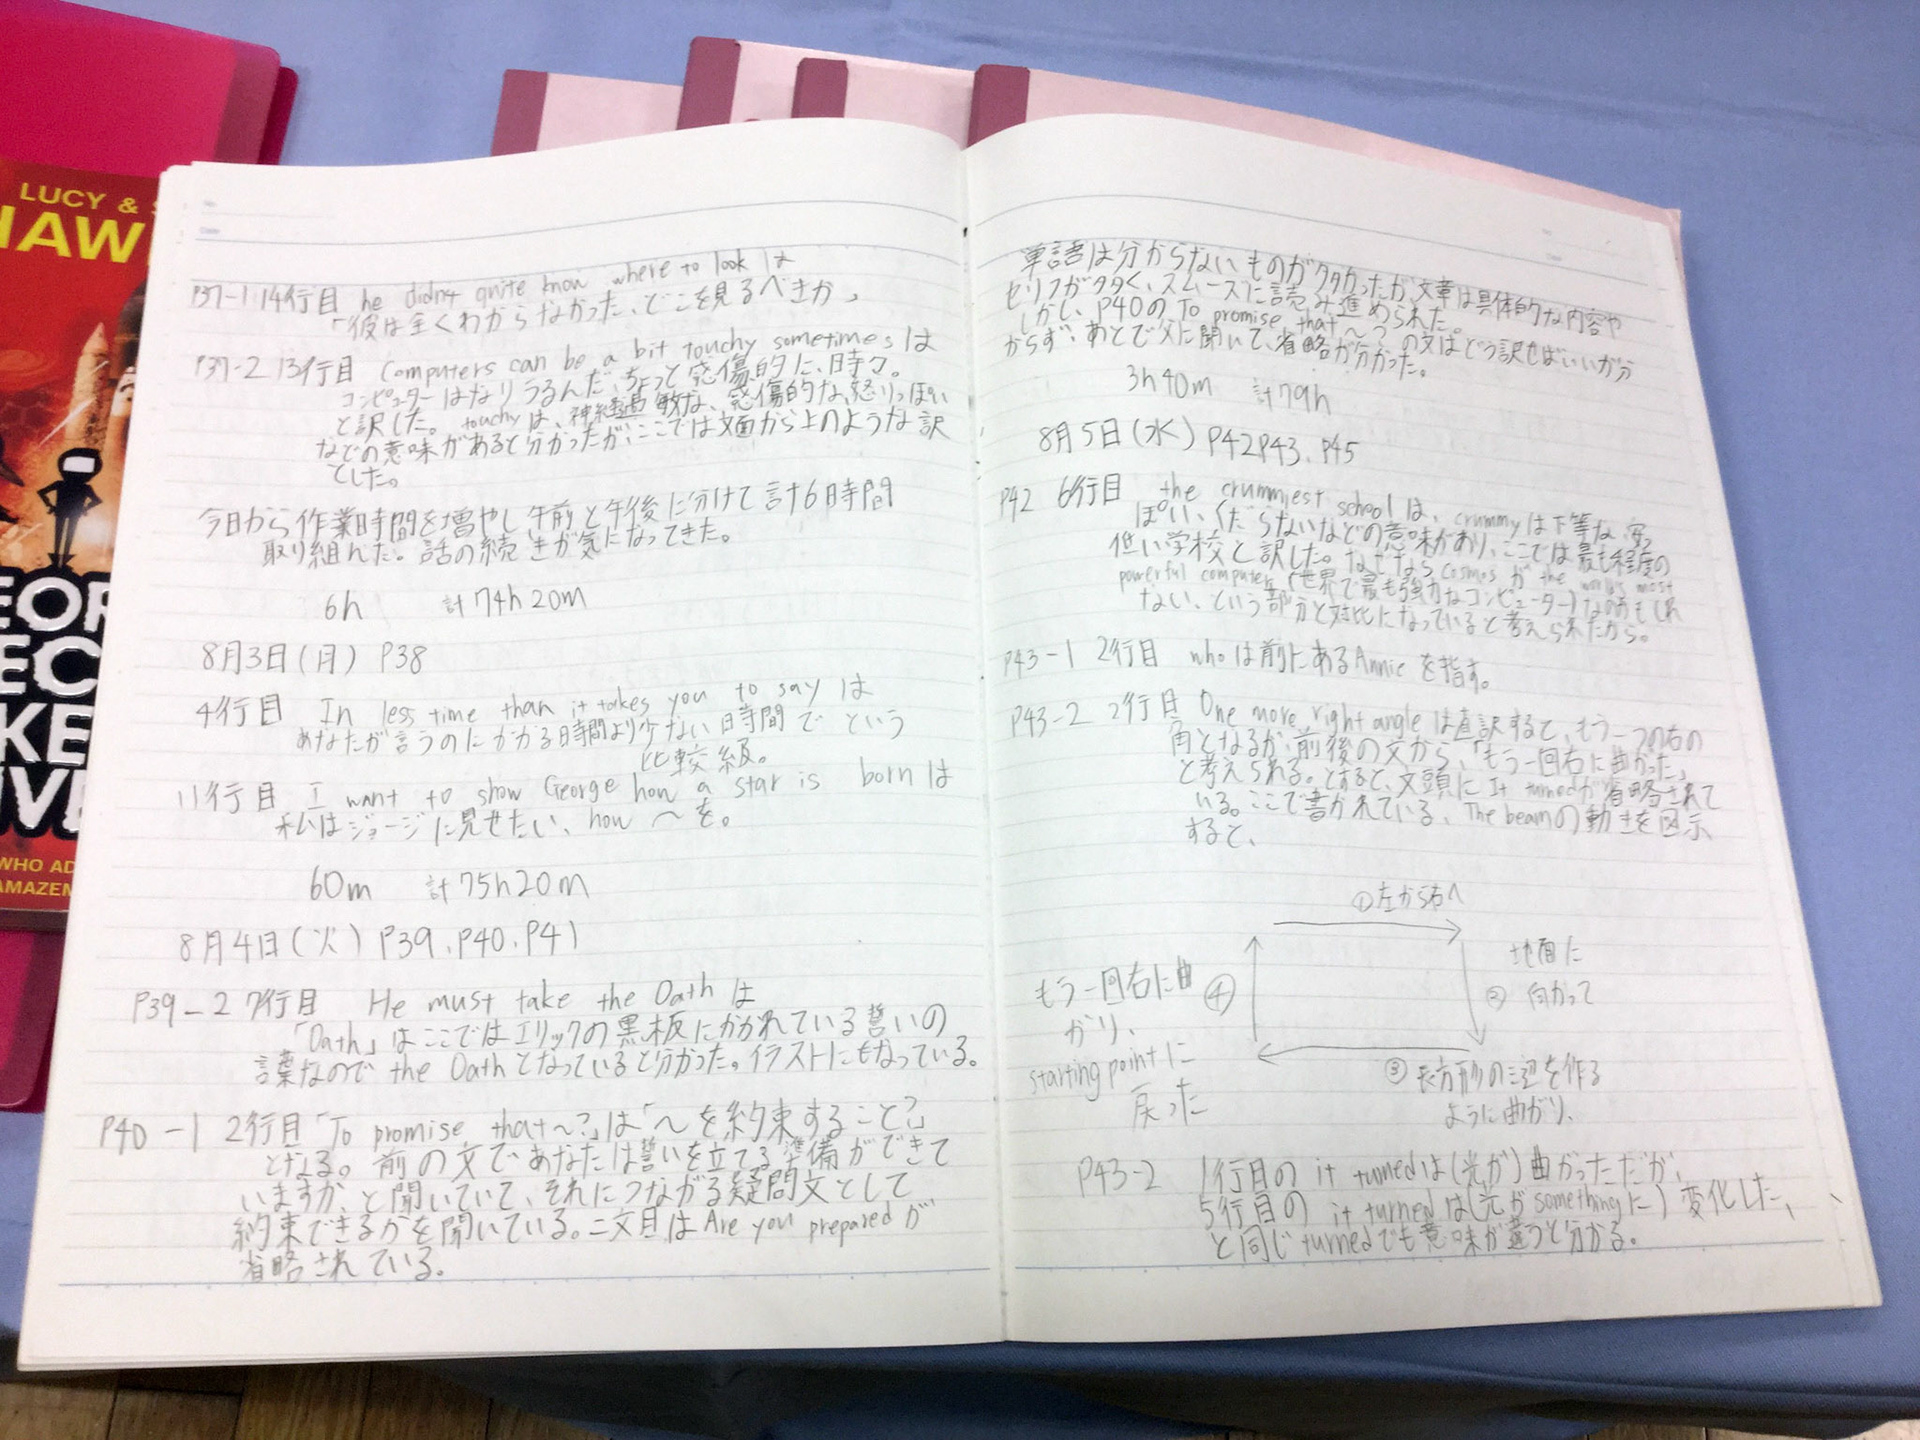 LUCY & S
HAW
EOR
EC
KE
IVE
WHO AD
AMAZEM
No.
Date
P37-1 14行目 he didn4 quite know where to look は
「彼は全くわからなかった、どこを見るべきか」
P37-2 13行目 Computers can be a bit touchy sometimes は
コンピューターはなりうるんだ、ちょっと感傷的に、時々。
と訳した。touchyは、神経過敏な、感傷的な、怒りっぽい
などの意味があると分かったが、ここでは文面から上のような訳
とした。
今日から作業時間を増やし、午前と午後に分けて計6時間
取り組んだ。話の続きが気になってきた。
6h 計74h20m
8月3日(月) P38
4行目 In less time than it takes you to say は
あなたが言うのにかかる時間より少ない時間で という
比較級。
11行目 I want to show George how a star is born は
私はジョージに見せたい、how 〜を。
60m 計75h20m
8月4日(火) P39、P40、P41
P39-2 7行目 He must take the Oath は
「Oath」はここではエリックの黒板にかかれている誓いの
言葉なので the Oath となっていると分かった。イラストにもなっている。
P40-1 2行目「To promise that〜?」は「〜を約束すること?」
となる。前の文で、あなたは誓いを立てる準備ができて
いますか、と聞いていて、それにつながる疑問文として
約束できるかを聞いている。二文目は Are you prepared が
省略されている。
No.
Date
単語は分からないものが多かったが、文章は具体的な内容や
セリフが多く、スムーズに読み進められた。
しかし、P40の To promise that 〜?の文はどう訳せばいいか分
からず、あとで父に聞いて、省略が分かった。
3h40m 計79h
8月5日(水) P42 P43、P45
P42 6行目 the crummiest school は、crummyは下等な、安っ
ぽい、くだらないなどの意味があり、ここでは最も程度の
低い学校と訳した。なぜならcosmosが the world's most
powerful computer (世界で最も強力なコンピューター)なのかもしれ
ない、という部分と対比になっていると考えられたから。
P43-1 2行目 who は前にある Annie を指す。
P43-2 2行目 One more right angle は直訳すると、もう一つの右の
角となるが、前後の文から、「もう一回右に曲がった」
と考えられる。とすると、文頭に It turned が省略されて
いる。ここで書かれている、The beamの動きを図示
すると、
①左から右へ
地面に
② 向かって
③ 長方形の三辺を作る
ように曲がり、
もう一回右に曲 ④
がり、
starting point に
戻った
P43-2 1行目の it turned は(光が)曲がっただが、
5行目の it turned は(光が something に)変化した、
と同じ turned でも意味が違うと分かる。